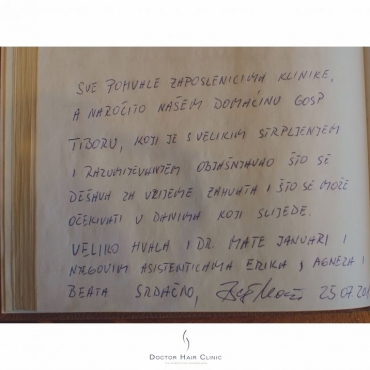 SVE POHVALE ZAPOSLENICIMA KLINIKE,
A NAROČITO NAŠEM DOMAĆINU GOSP
TIBORU, KOJI JE S VELIKIM STRPLJENJEM
I RAZUMIJEVANJEM OBJAŠNJAVAO ŠTO SE
DEŠAVA ZA VRIJEME ZAHVATA I ŠTO SE MOŽE
OČEKIVATI U DANIMA KOJI SLIJEDE.
VELIKO HVALA I DR. MATE JANUARI I
NJEGOVIM ASISTENTICAMA ERIKA, AGNEZA I
BEATA SRDAČNO, 25.07.201
DOCTOR HAIR CLINIC